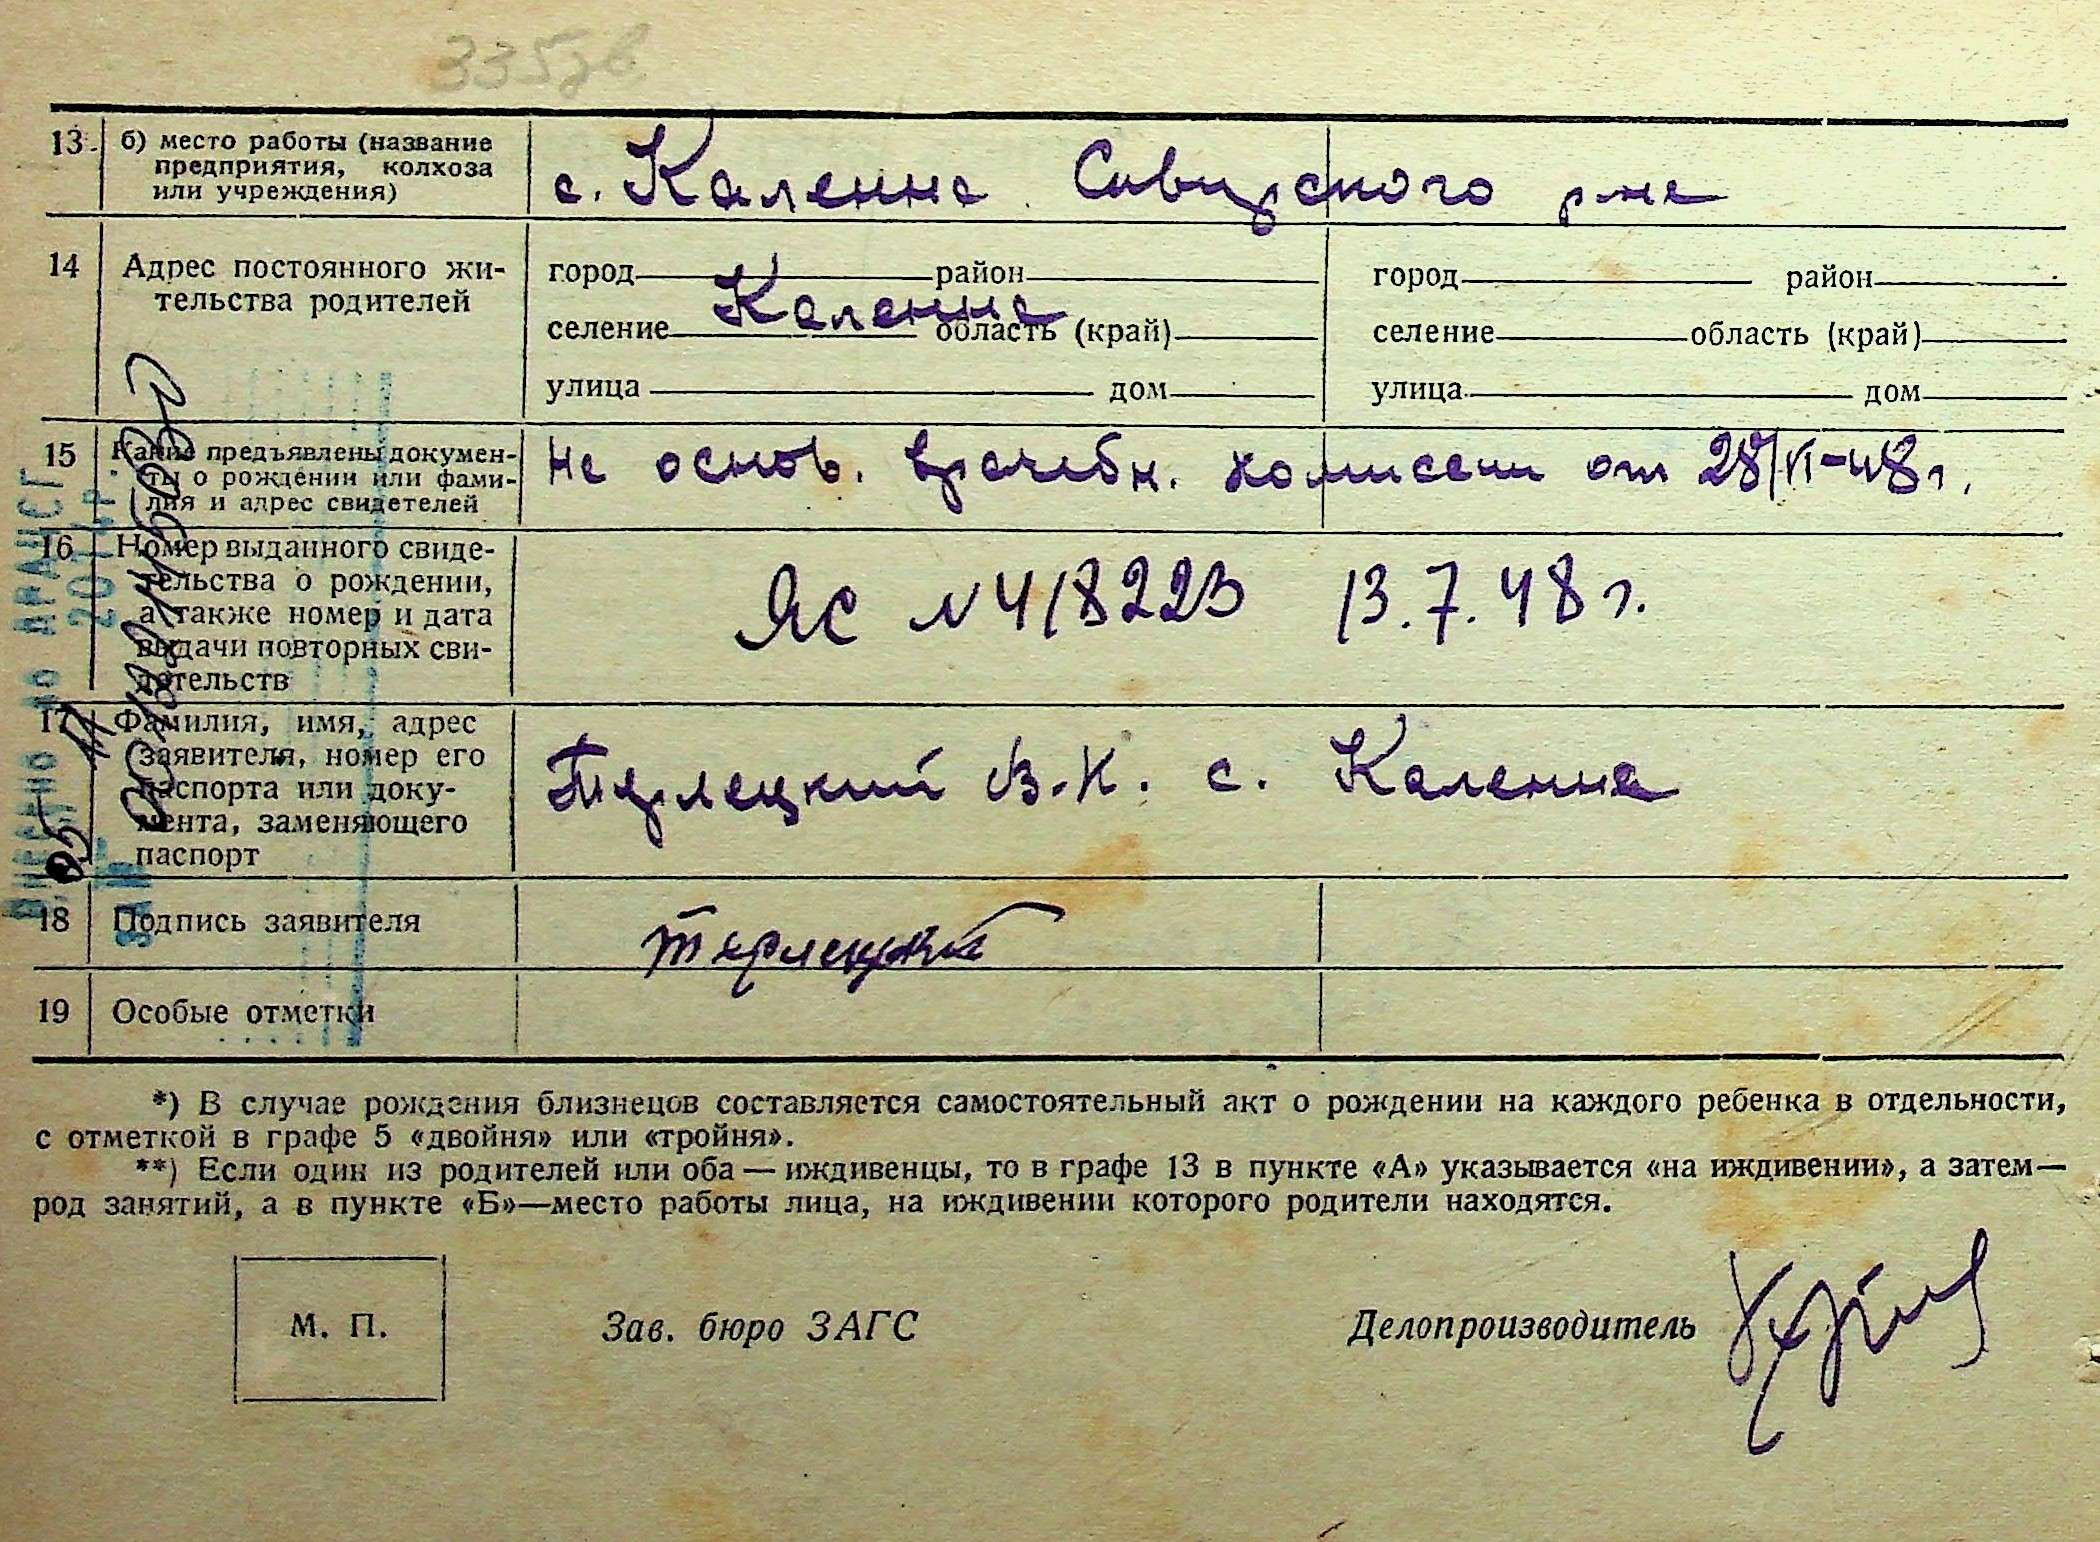 13. б) место работы (название
предприятия, колхоза
или учреждения)
с. Каленна
14 Адрес постоянного жи-
тельства родителей
город район
Каленна
селение область (край)
улица дом
город район
селение область (край)
улица дом
15 Какие предъявлены докумен-
ты о рождении или фами-
лия и адрес свидетелей
на основ. врачебн. комиссии от 28/VI-48г.
16 Номер выданного свиде-
тельства о рождении,
а также номер и дата
выдачи повторных сви-
детельств
ЯС N 418223 13.7.48 г.
17 Фамилия, имя, адрес
заявителя, номер его
паспорта или доку-
мента, заменяющего
паспорт
Терлецкий В.К. с. Каленна
18 Подпись заявителя
Терлецкий
19 Особые отметки
*) В случае рождения близнецов составляется самостоятельный акт о рождении на каждого ребенка в отдельности,
с отметкой в графе 5 «двойня» или «тройня».
**) Если один из родителей или оба — иждивенцы, то в графе 13 в пункте «А» указывается «на иждивении», а затем—
род занятий, а в пункте «Б»—место работы лица, на иждивении которого родители находятся.
М. П.
Зав. бюро ЗАГС
Делопроизводитель